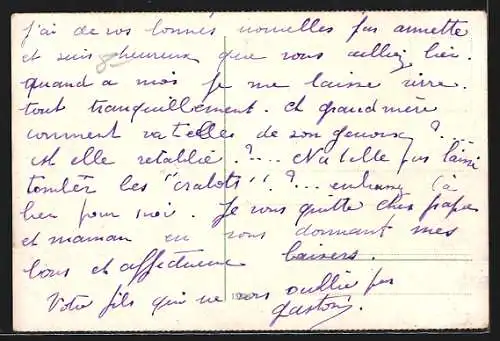 J'ai de vos bonnes nouvelles par annette
et suis heureux que vous alliez bien.
quand a moi je me laisse vivre.
tout tranquillement. et grand mère
comment va telle de son genoux ?....
est elle retablie.?.... N'a telle pas laissé
tomber les "crabots".?... 
bien pour moi. Je vous quitte cher papa
et maman en vous donnant mes
bons et affectueux baisers.
Votre fils qui ne vous oublie pas
gaston